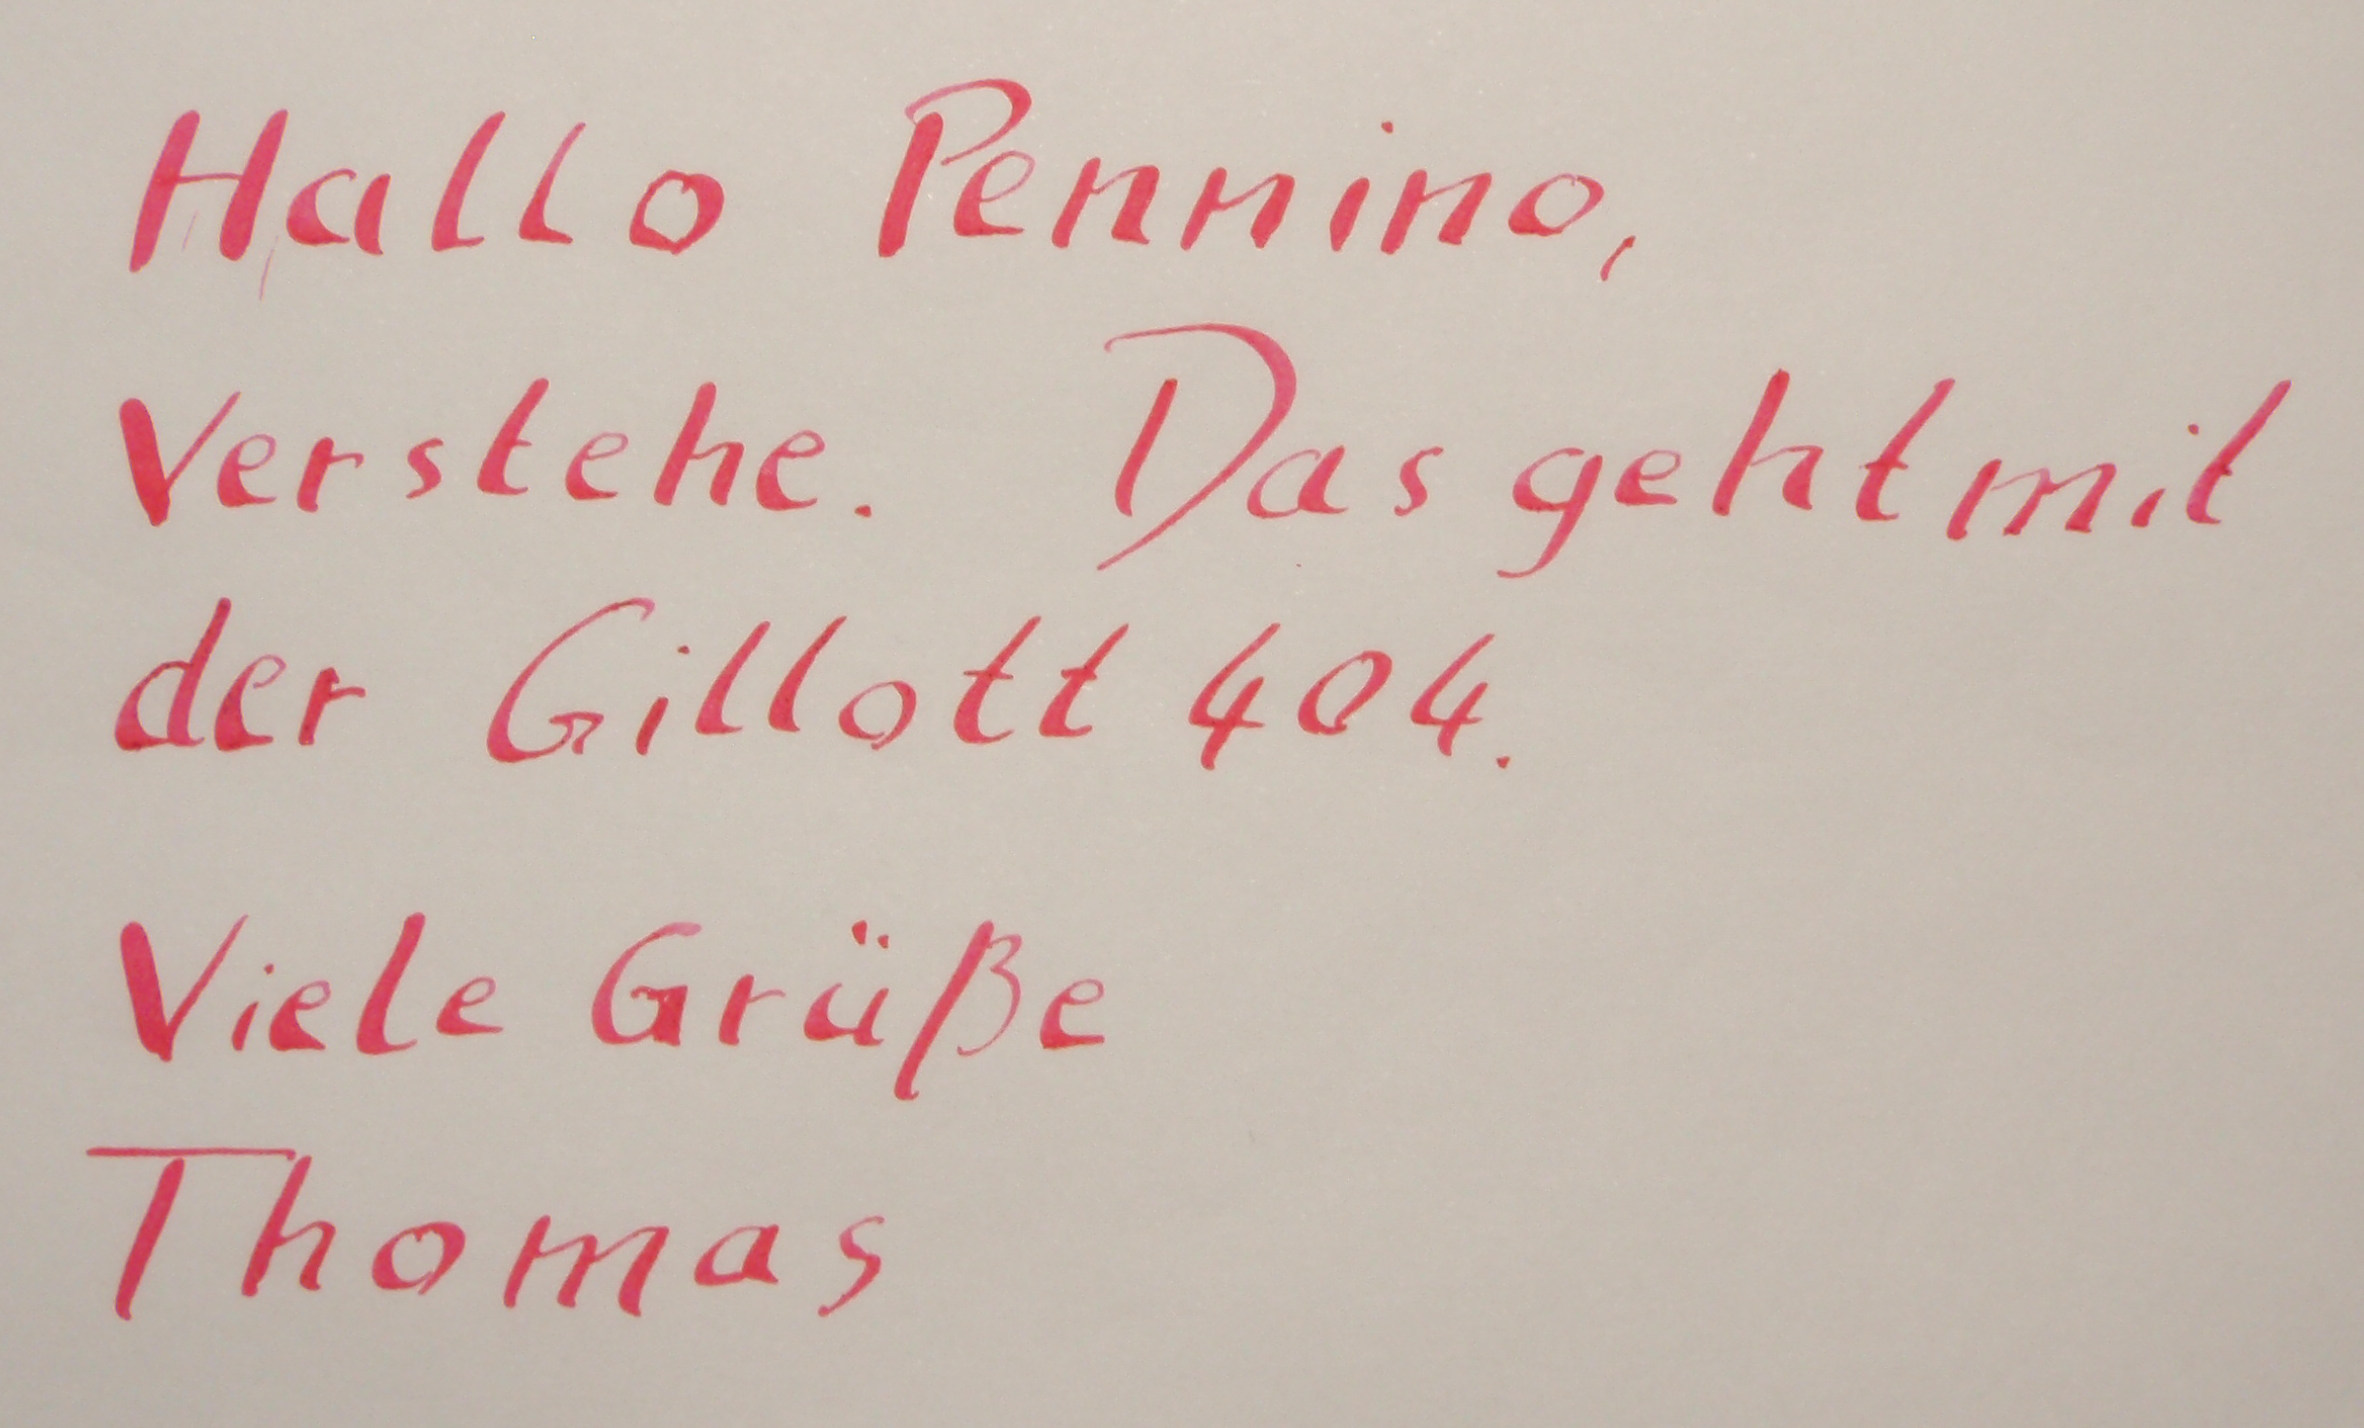 Hallo Pennino,
Verstehe. Das geht mit
der Gillott 404.
Viele Grüße
Thomas